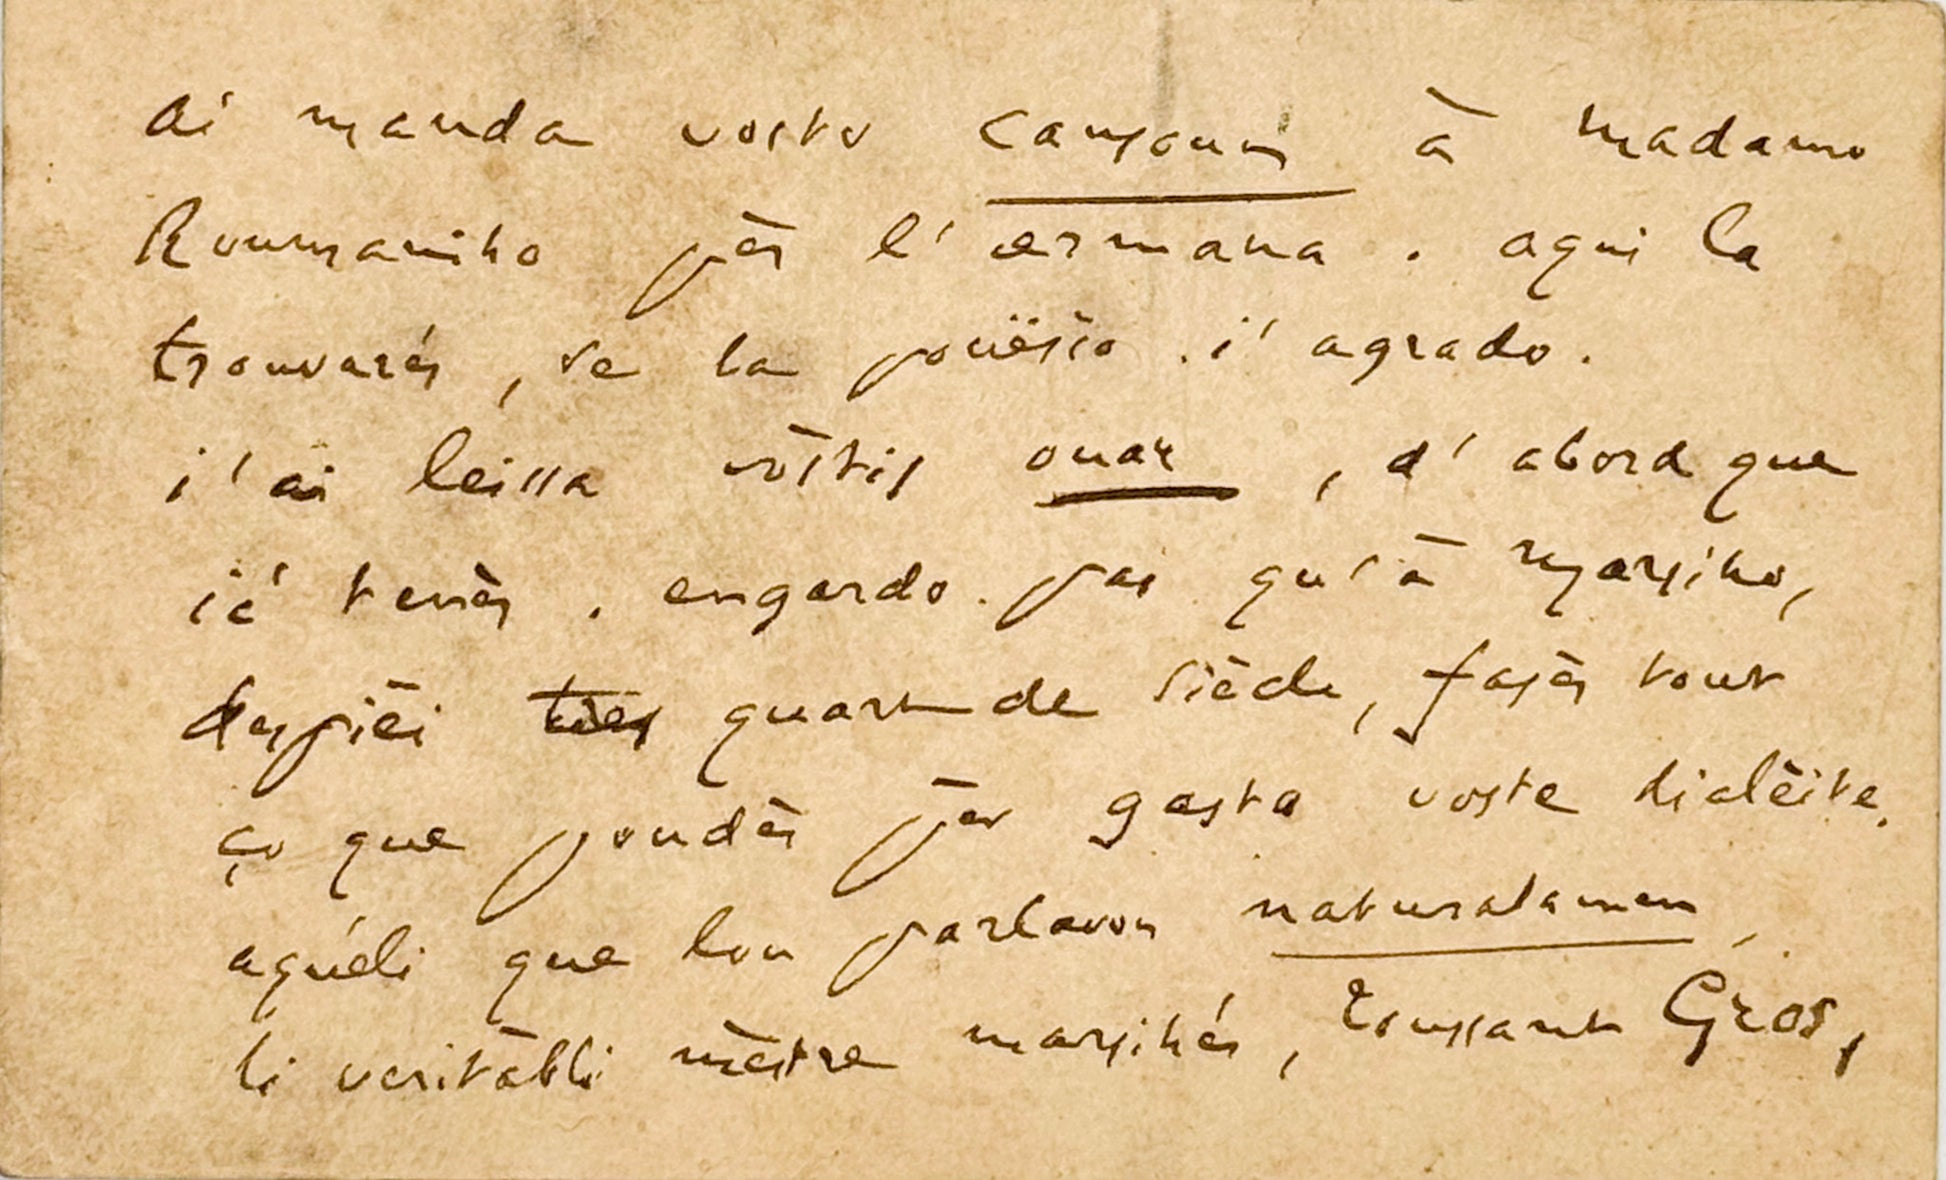 ai manda vosto cansoun à Madamo
Roumaniho pèr l'armana. aqui la
trouvarés, se la pouësio i'agrado.
i'ai leissa vòstis ouar, d'abord que
ié tenès. engardo pas qu'à Marsiho,
despièi tres quart de siècle, fasès tout
ço que poudès pèr gasta voste dialèite.
aquéli que lou parlavon naturalamen,
li veritàbli mèstre marsihés, Toussant Gros,